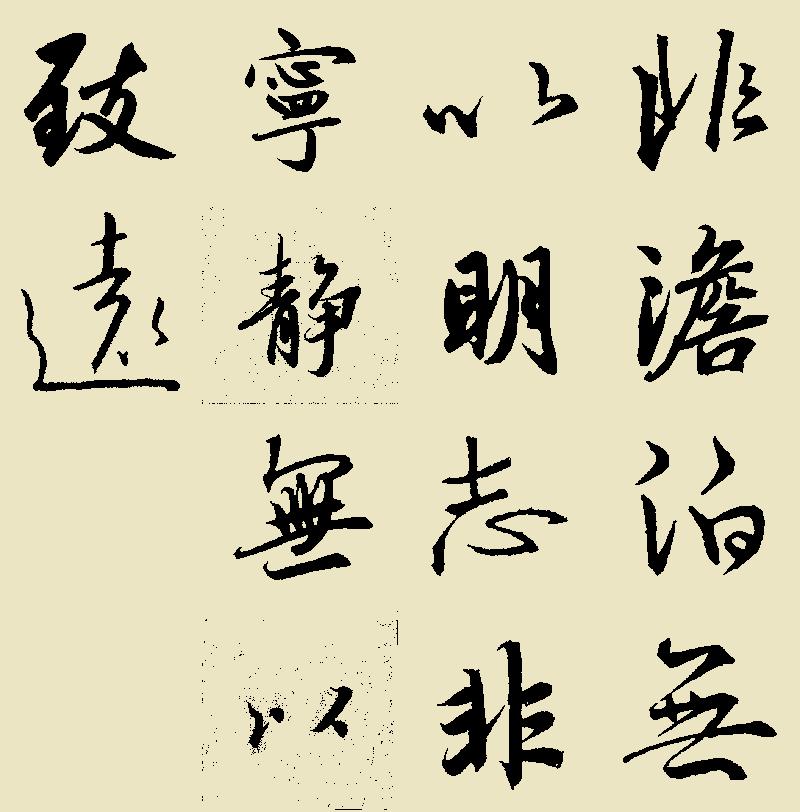 非澹泊無
以明志非
寧靜無以
致遠